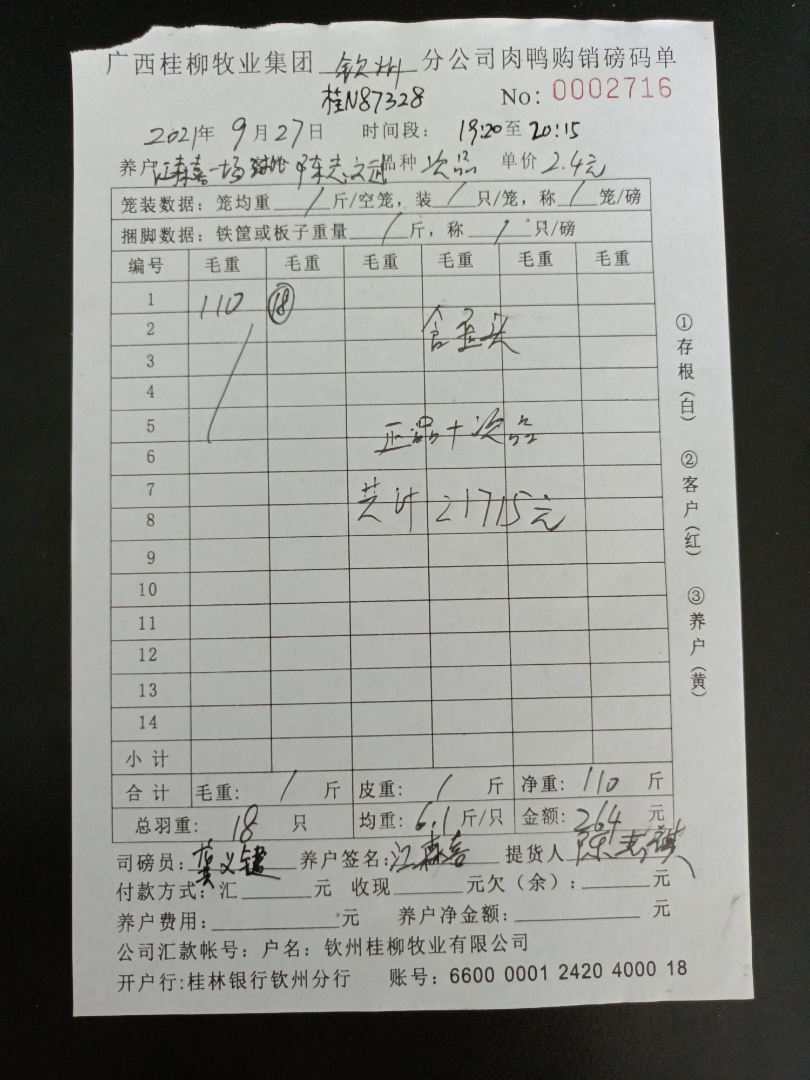 广西桂柳牧业集团 钦州 分公司肉鸭购销磅码单
桂N87328 No: 0002716
2021年 9月27日 时间段: 19:20至 20:15
养户 江森喜一场 陈志 品种 次品 单价 2.4元
笼装数据: 笼均重 / 斤/空笼, 装 / 只/笼, 称 / 笼/磅
捆脚数据: 铁筐或板子重量 / 斤, 称 / 只/磅
编号 毛重 毛重 毛重 毛重 毛重 毛重
1 110 18
2 含歪头
3
4
5 正品+次品
6
7 共计21715元
8
9
10
11
12
13
14
小计
合计 毛重: / 斤 皮重: / 斤 净重: 110 斤
总羽重: 18 只 均重: 6.1 斤/只 金额: 264 元
司磅员: 龚义键 养户签名: 江森喜 提货人 陈志
付款方式: 汇 元 收现 元欠(余): 元
养户费用: 元 养户净金额: 元
公司汇款帐号: 户名: 钦州桂柳牧业有限公司
开户行:桂林银行钦州分行 账号: 6600 0001 2420 4000 18
①存根(白) ②客户(红) ③养户(黄)